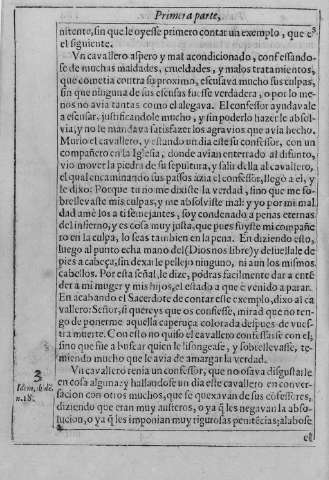 Primera parte,
nitento, sin que le oyesse primero contar un exemplo, que es
el siguiente.
Vn cavallero aspero y mal acondicionado, confessando-
se de muchas maldades, crueldades, y malos tratamientos,
que cometia contra su proximo, escusava mucho sus culpas,
sin que ninguna de sus escusas fuesse verdadera, o por lo me-
nos no avia tantas como el alegava. El confessor ayudavale
a escusar, justificandole mucho, y sin poderlo hazer le absol-
via; y no le mandava satisfazer los agravios que avia hecho.
Murio el cavallero, y estando un dia este su confessor, con un
compañero en la Iglesia, donde avian enterrado al difunto,
vio mover la piedra de su sepultura, y salir della al cavallero,
el qual encaminando sus passos azia el confessor, llegò a el, y
le dixo: Porque tu no me dixiste la verdad, sino que me so-
brellevaste mis culpas, y me absolviste mal: y yo por mi mal-
dad amè los a ti semejantes, soy condenado a penas eternas
del infierno, y es cosa muy justa, que pues fuyste mi compañe
ro en la culpa, lo seas tambien en la pena. En diziendo esto,
luego al punto echa mano del (Dios nos libre) y desuellale de
pies a cabeça, sin dexarle pellejo ninguno, ni aun los mismos
cabellos. Por esta señal, le dize, podras facilmente dar a entē
der a mi muger y mis hijos, el estado a que è venido a parar.
En acabando el Sacerdote de contar este exemplo, dixo al ca
vallero: Señor, si quereys que os confiesse, mirad que no ten-
go de ponerme aquella caperuça colorada despues de vues-
tra muerte. Con esto no quiso el cavallero confessarse con el,
sino que fue a buscar quien le lisongease, y sobrellevasse, te-
miendo mucho que le avia de amargar la verdad.
3
Idem, ibidē.
n. 18.
Vn cavallero tenia un confessor, que no osava disgustarle
en cosa alguna: y hallandose un dia este cavallero en conver-
sacion con otros muchos, que se quexavan de sus cōfessores,
diziendo que eran muy austeros, o ya q̃ les negavan la abso-
lucion, o ya q̃ les imponian muy rigurosas penitēcias; alabose
el